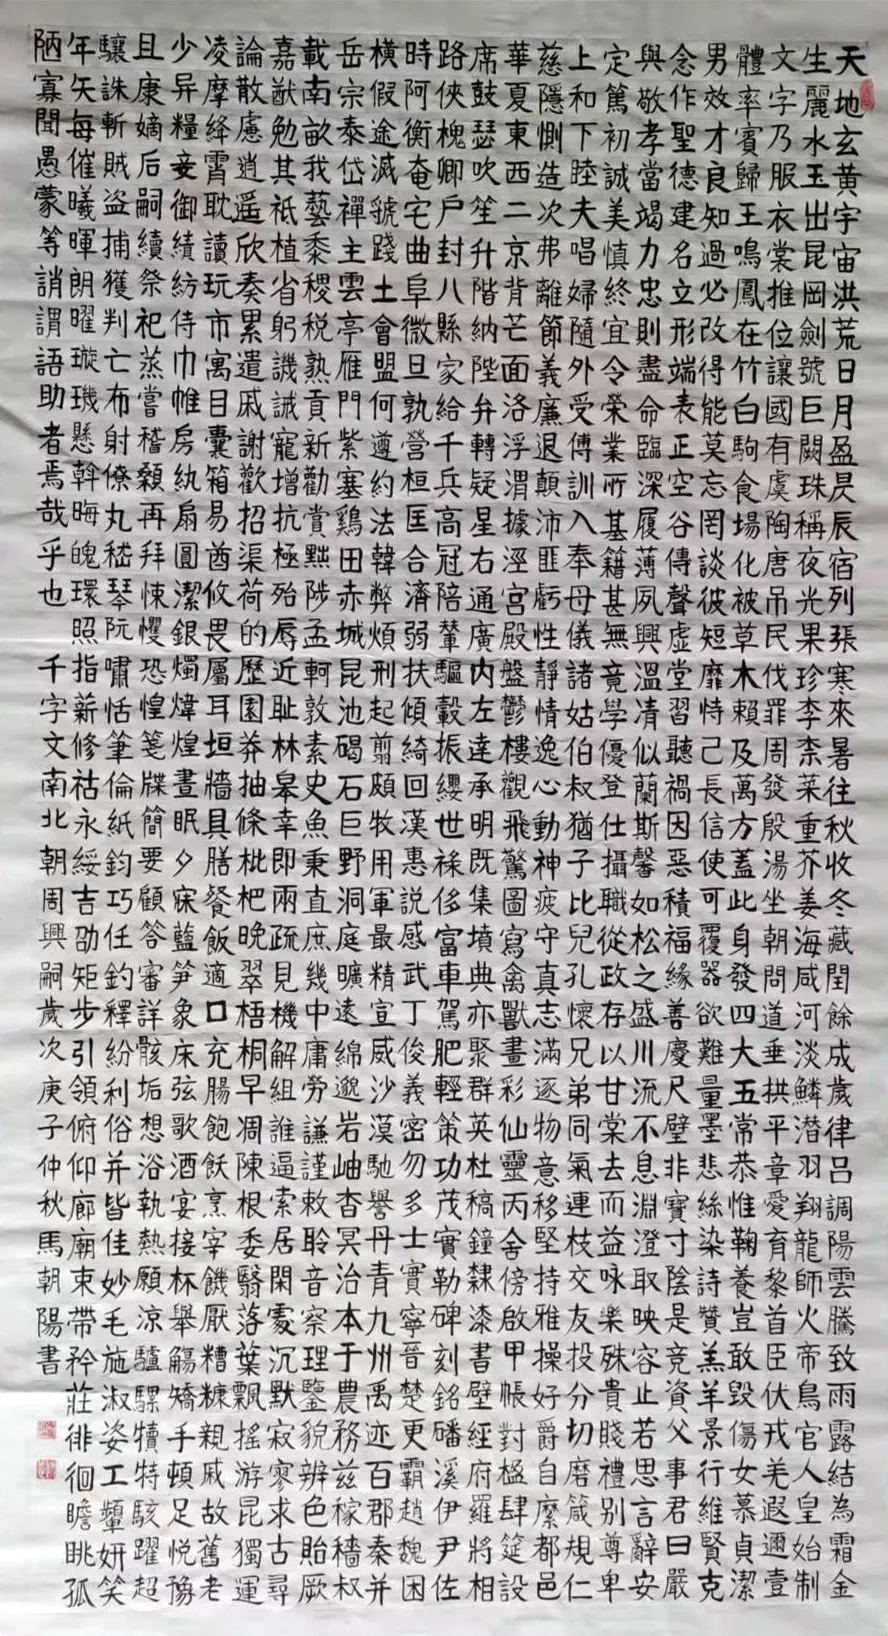 天地玄黃宇宙洪荒日月盈昃辰宿列張寒來暑往秋收冬藏閏餘成歲律呂調陽雲騰致雨露結為霜金
生麗水玉出昆岡劍號巨闕珠稱夜光果珍李柰菜重芥姜海咸河淡鱗潛羽翔龍師火帝鳥官人皇始制
文字乃服衣裳推位讓國有虞陶唐吊民伐罪周發殷湯坐朝問道垂拱平章愛育黎首臣伏戎羌遐邇壹
體率賓歸王鳴鳳在竹白駒食場化被草木賴及萬方蓋此身發四大五常恭惟鞠養豈敢毀傷女慕貞潔
男效才良知過必改得能莫忘罔談彼短靡恃己長信使可覆器欲難量墨悲絲染詩贊羔羊景行維賢克
念作聖德建名立形端表正空谷傳聲虛堂習聽禍因惡積福緣善慶尺璧非寶寸陰是競資父事君曰嚴
與敬孝當竭力忠則盡命臨深履薄夙興溫凊似蘭斯馨如松之盛川流不息淵澄取映容止若思言辭安
定篤初誠美慎終宜令榮業所基籍甚無竟學優登仕攝職從政存以甘棠去而益咏樂殊貴賤禮別尊卑
上和下睦夫唱婦隨外受傅訓入奉母儀諸姑伯叔猶子比兒孔懷兄弟同氣連枝交友投分切磨箴規仁
慈隱惻造次弗離節義廉退顛沛匪虧性靜情逸心動神疲守真志滿逐物意移堅持雅操好爵自縻都邑
華夏東西二京背芒面洛浮渭據涇宮殿盤鬱樓觀飛驚圖寫禽獸畫彩仙靈丙舍傍啟甲帳對楹肆筵設
席鼓瑟吹笙升階納陛弁轉疑星右通廣內左達承明既集墳典亦聚群英杜稿鐘隸漆書壁經府羅將相
路俠槐卿戶封八縣家給千兵高冠陪輦驅轂振纓世祿侈富車駕肥輕策功茂實勒碑刻銘磻溪伊尹佐
時阿衡奄宅曲阜微旦孰營桓匡合濟弱扶傾綺回漢惠說感武丁俊義密勿多士實寧晉楚更霸趙魏困
橫假途滅虢踐土會盟何遵約法韓弊煩刑起翦頗牧用軍最精宣威沙漠馳譽丹青九州禹迹百郡秦并
岳宗泰岱禪主雲亭雁門紫塞鷄田赤城昆池碣石巨野洞庭曠遠綿邈岩岫杳冥治本于農務茲稼穡叔
載南畝我藝黍稷稅熟貢新勸賞黜陟孟軻敦素史魚秉直庶幾中庸勞謙謹敕聆音察理鑒貌辨色貽厥
嘉猷勉其祗植省躬譏誡寵增抗極殆辱近耻林皋幸即兩疏見機解組誰逼索居閑處沉默寂寥求古尋
論散慮逍遙欣奏累遣戚謝歡招渠荷的歷園莽抽條枇杷晚翠梧桐早凋陳根委翳落葉飄搖游昆獨運
凌摩絳霄耽讀玩市寓目囊箱易酋攸畏屬耳垣牆具膳餐飯適口充腸飽飫烹宰饑厭糟糠親戚故舊老
少异糧妾御績紡侍巾帷房紈扇圓潔銀燭煒煌晝眠夕寐藍笋象床弦歌酒宴接杯舉觴矯手頓足悅豫
且康嫡后嗣續祭祀蒸嘗稽顙再拜悚懼恐惶箋牒簡要顧答審詳骸垢想浴執熱願涼驢騾犢特駭躍超
驤誅斬賊盜捕獲判亡布射僚丸嵇琴阮嘯恬筆倫紙鈞巧任釣釋紛利俗并皆佳妙毛施淑姿工顰妍笑
年矢每催曦暉朗曜璇璣懸斡晦魄環照指薪修祜永綏吉劭矩步引領俯仰廊廟束帶矜莊徘徊瞻眺孤
陋寡聞愚蒙等誚謂語助者焉哉乎也 千字文南北朝周興嗣歲次庚子仲秋馬朝陽書